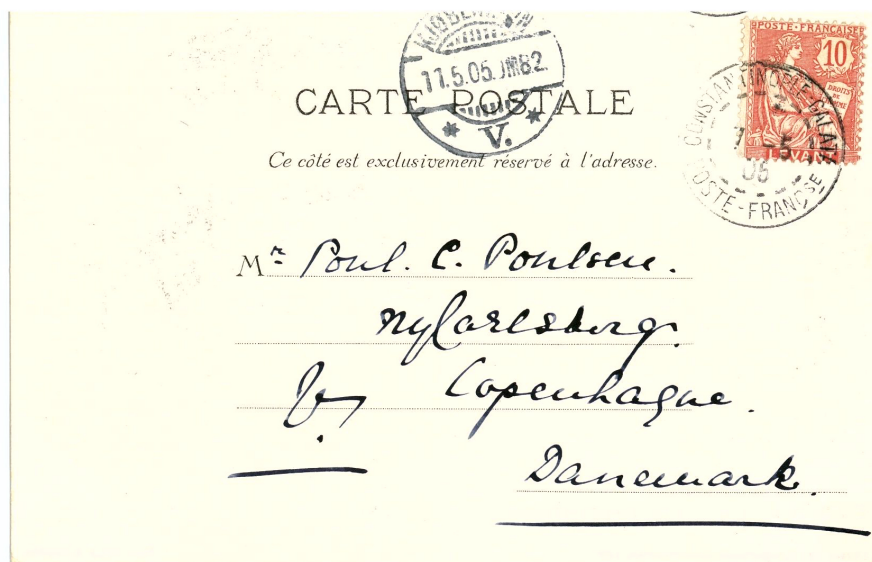 KJØBENHAVN
11.5.05. OMB2.
V.
POSTE FRANÇAISE
10
DROITS DE L'HOMME
LEVANT
CONSTANTINOPLE-GALATA
7 -5
05
POSTE-FRANÇSE
CARTE POSTALE
Ce côté est exclusivement réservé à l'adresse.
Mr Poul. C. Poulsen.
Ny Carlsberg.
Copenhague.
Danemark.